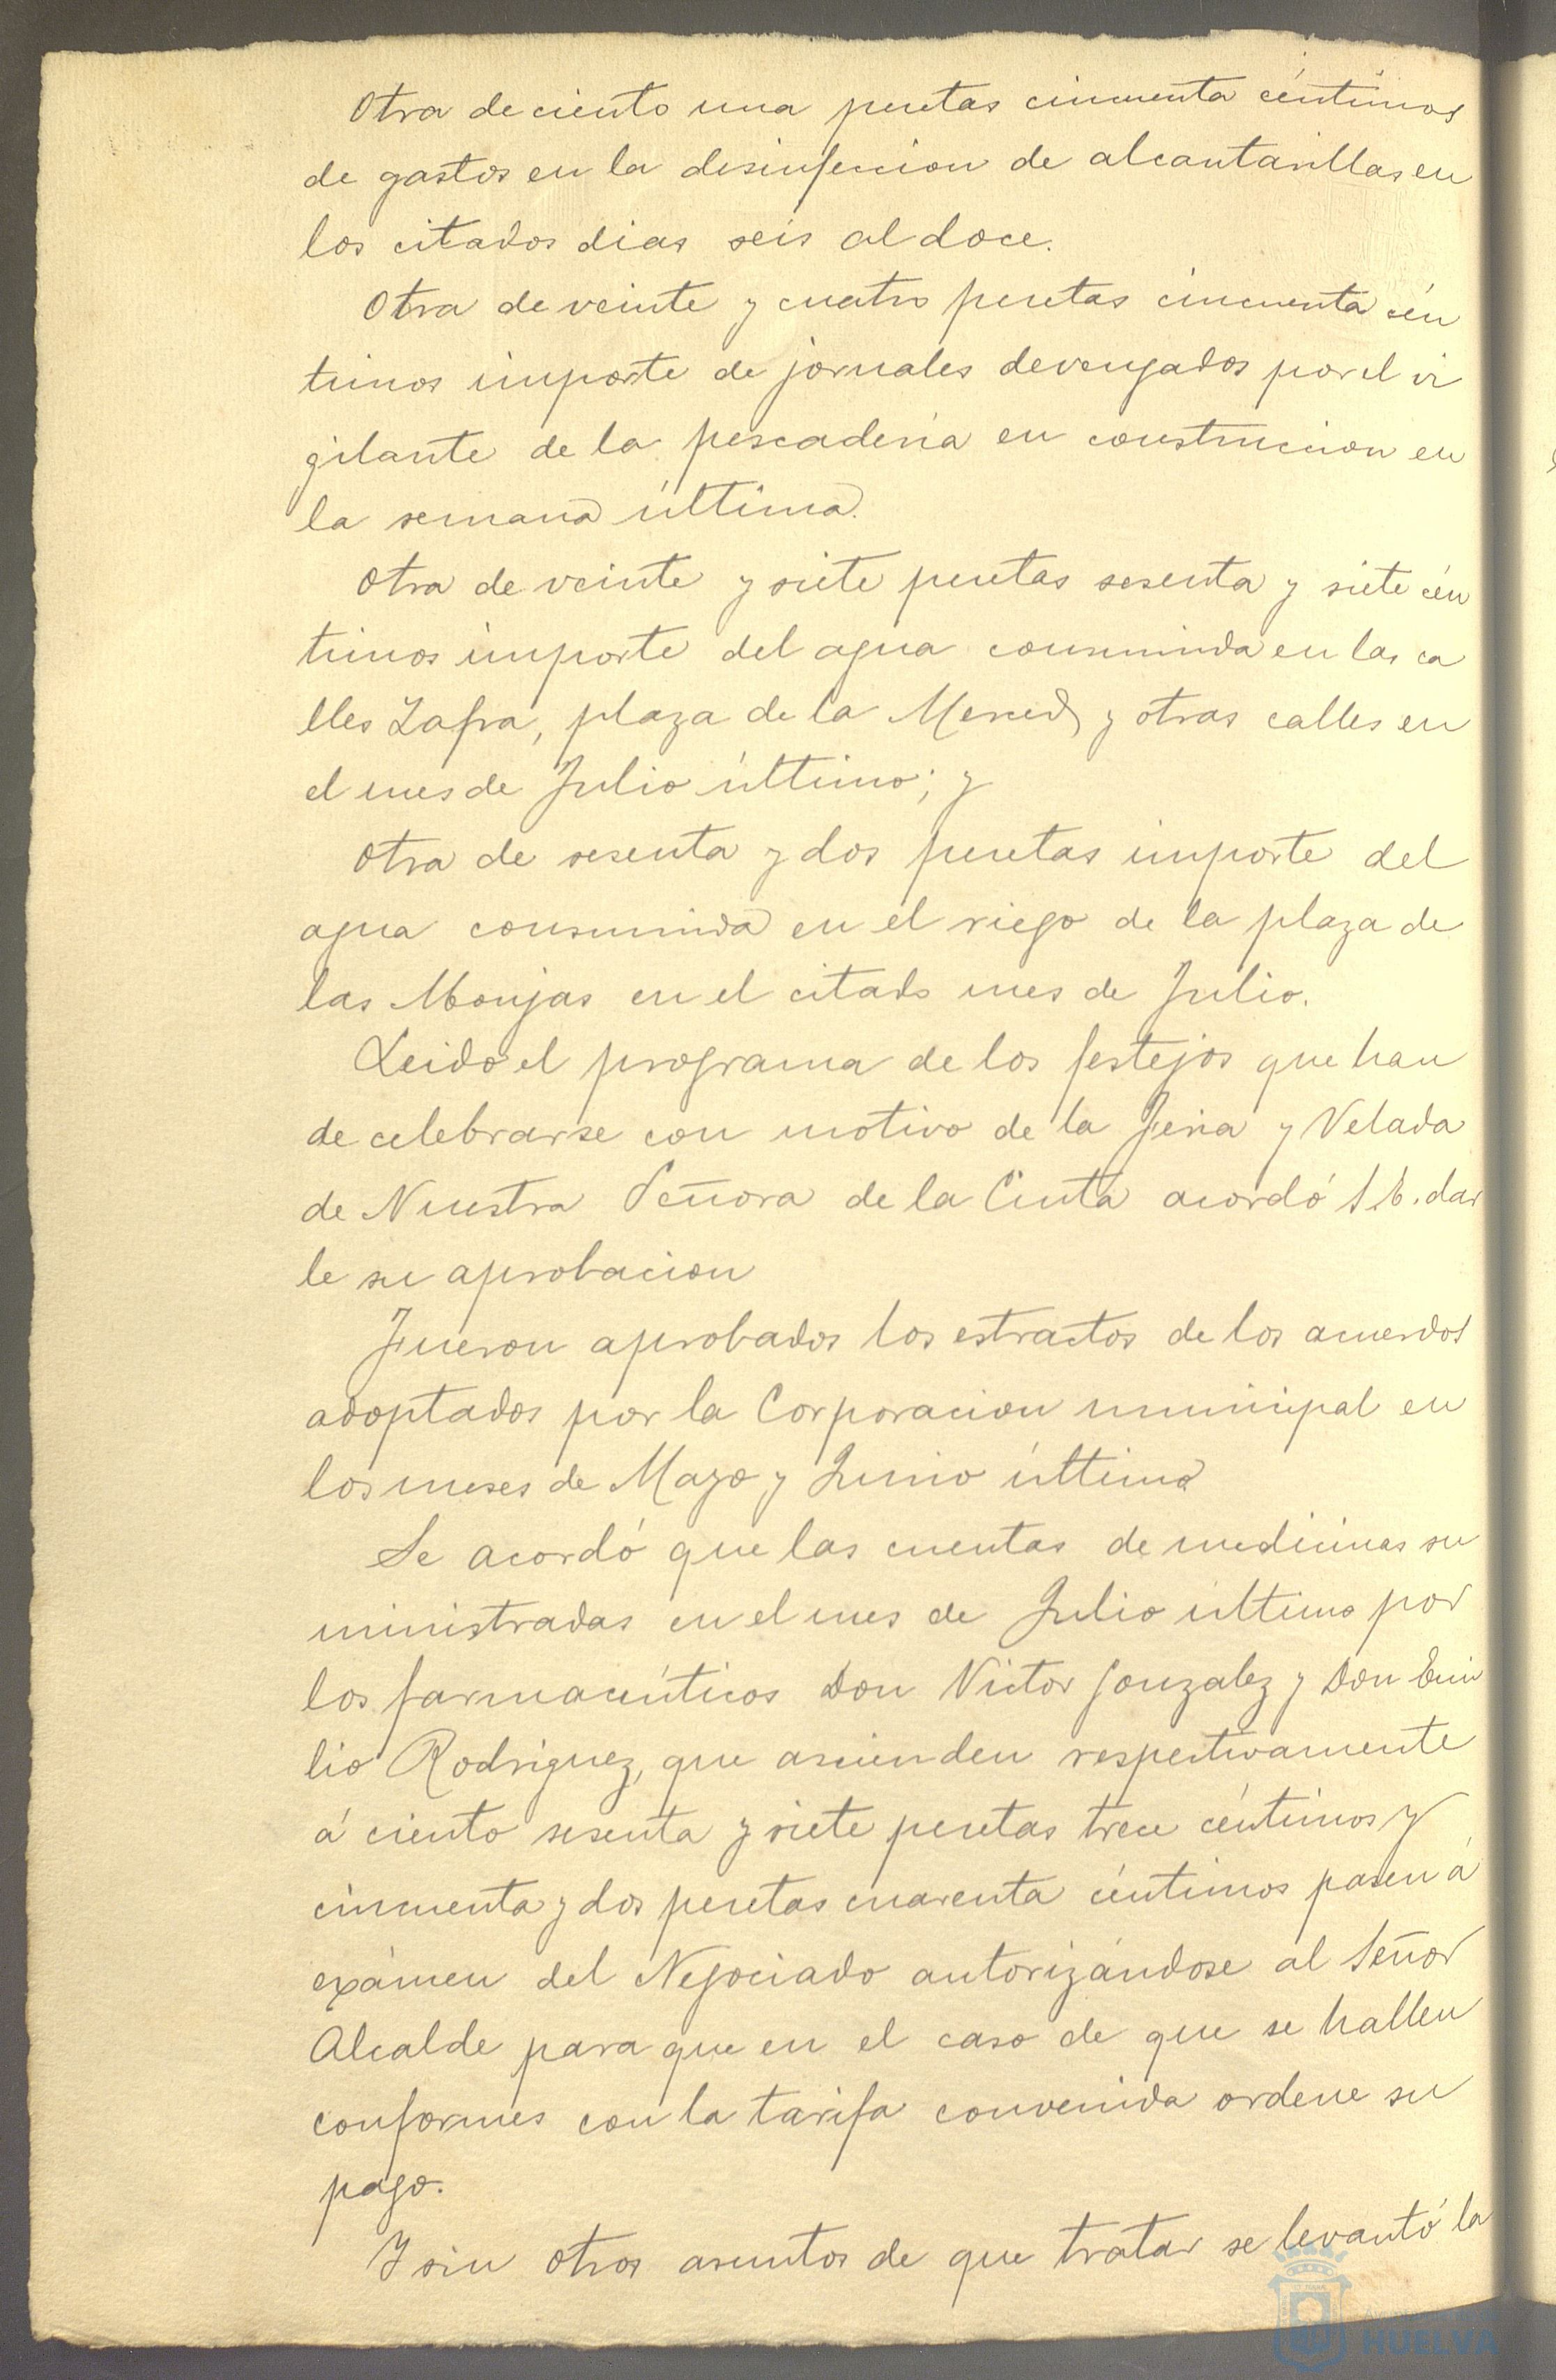 Otra de ciento una pesetas cincuenta céntimos
de gastos en la desinfeccion de alcantarillas en
los citados dias seis al doce.
Otra de veinte y cuatro pesetas cincuenta cén
timos importe de jornales devengados por el vi
gilante de la pescadería en construccion en
la semana última.
Otra de veinte y siete pesetas sesenta y siete cén
timos importe del agua consumida en las ca
lles Zafra, plaza de la Merced y otras calles en
el mes de Julio último; y
Otra de sesenta y dos pesetas importe del
agua consumida en el riego de la plaza de
las Monjas en el citado mes de Julio.
Leido el programa de los festejos que han
de celebrarse con motivo de la Feria y Velada
de Nuestra Señora de la Cinta acordó S.E. dar
le su aprobacion
Fueron aprobados los estractos de los acuerdos
adoptados por la Corporacion municipal en
los meses de Mayo y Junio último
Se acordó que las cuentas de medicinas su
ministradas en el mes de Julio último por
los farmacéuticos Don Victor Gonzalez y Don Emi
lio Rodriguez, que ascienden respectivamente
á ciento sesenta y siete pesetas trece céntimos y
cincuenta y dos pesetas cuarenta céntimos pasen á
exámen del Negociado autorizándose al Señor
Alcalde para que en el caso de que se hallen
conformes con la tarifa convenida ordene su
pago.
Y sin otros asuntos de que tratar se levantó la
HUELVA